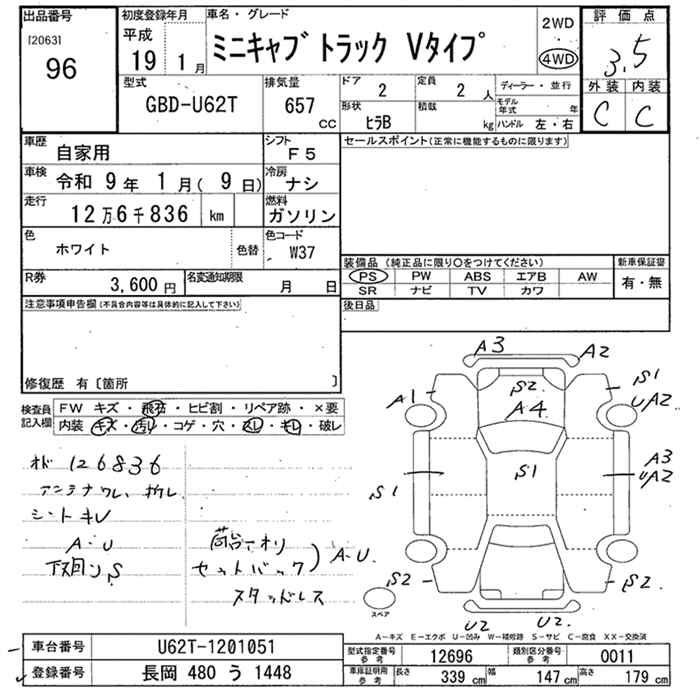 出品番号
[2063]
96
初度登録年月
平成
19 1月
車名・グレード
ミニキャブ トラック Vタイプ
2WD
4WD
評価点
3.5
外装 内装
C C
型式
GBD-U62T
排気量
657 CC
ドア
2
定員
2 人
形状
ヒラB
積載
kg
ディーラー・並行
モデル年式 年
ハンドル 左・右
車歴
自家用
シフト
F5
車検
令和 9年 1月( 9日)
冷房
ナシ
走行
12万6千836 km
燃料
ガソリン
色
ホワイト
色替
色コード
W37
R券
3,600 円
名変通知期限
月 日
セールスポイント(正常に機能するものに限ります)
装備品 (純正品に限り○をつけてください)
PS PW ABS エアB AW
SR ナビ TV カワ
新車保証書
有・無
後日品
注意事項申告欄(不具合内容等は具体的に記入して下さい)
修復歴 有〔箇所 〕
検査員記入欄
FW キズ・飛石・ヒビ割・リペア跡・×要
内装 キズ・汚レ・コゲ・穴・スレ・キレ・破レ
126836
シートキレ
A・U
下廻リS
荷台アオリ
セットバック
A・U
スタッドレス
A3
A2
S1
UA2
A1
S2
A4
S1
S1
A3
UA2
S2
S2
U2
U2
スペア
A-キズ E-エクボ U-凹み W-補修跡 S-サビ C-腐食 XX-交換済
車台番号
U62T-1201051
登録番号
長岡 480 う 1448
型式指定番号 参考
12696
類別区分番号 参考
0011
車庫証明用 参考
長さ 339 cm 幅 147 cm 高さ 179 cm